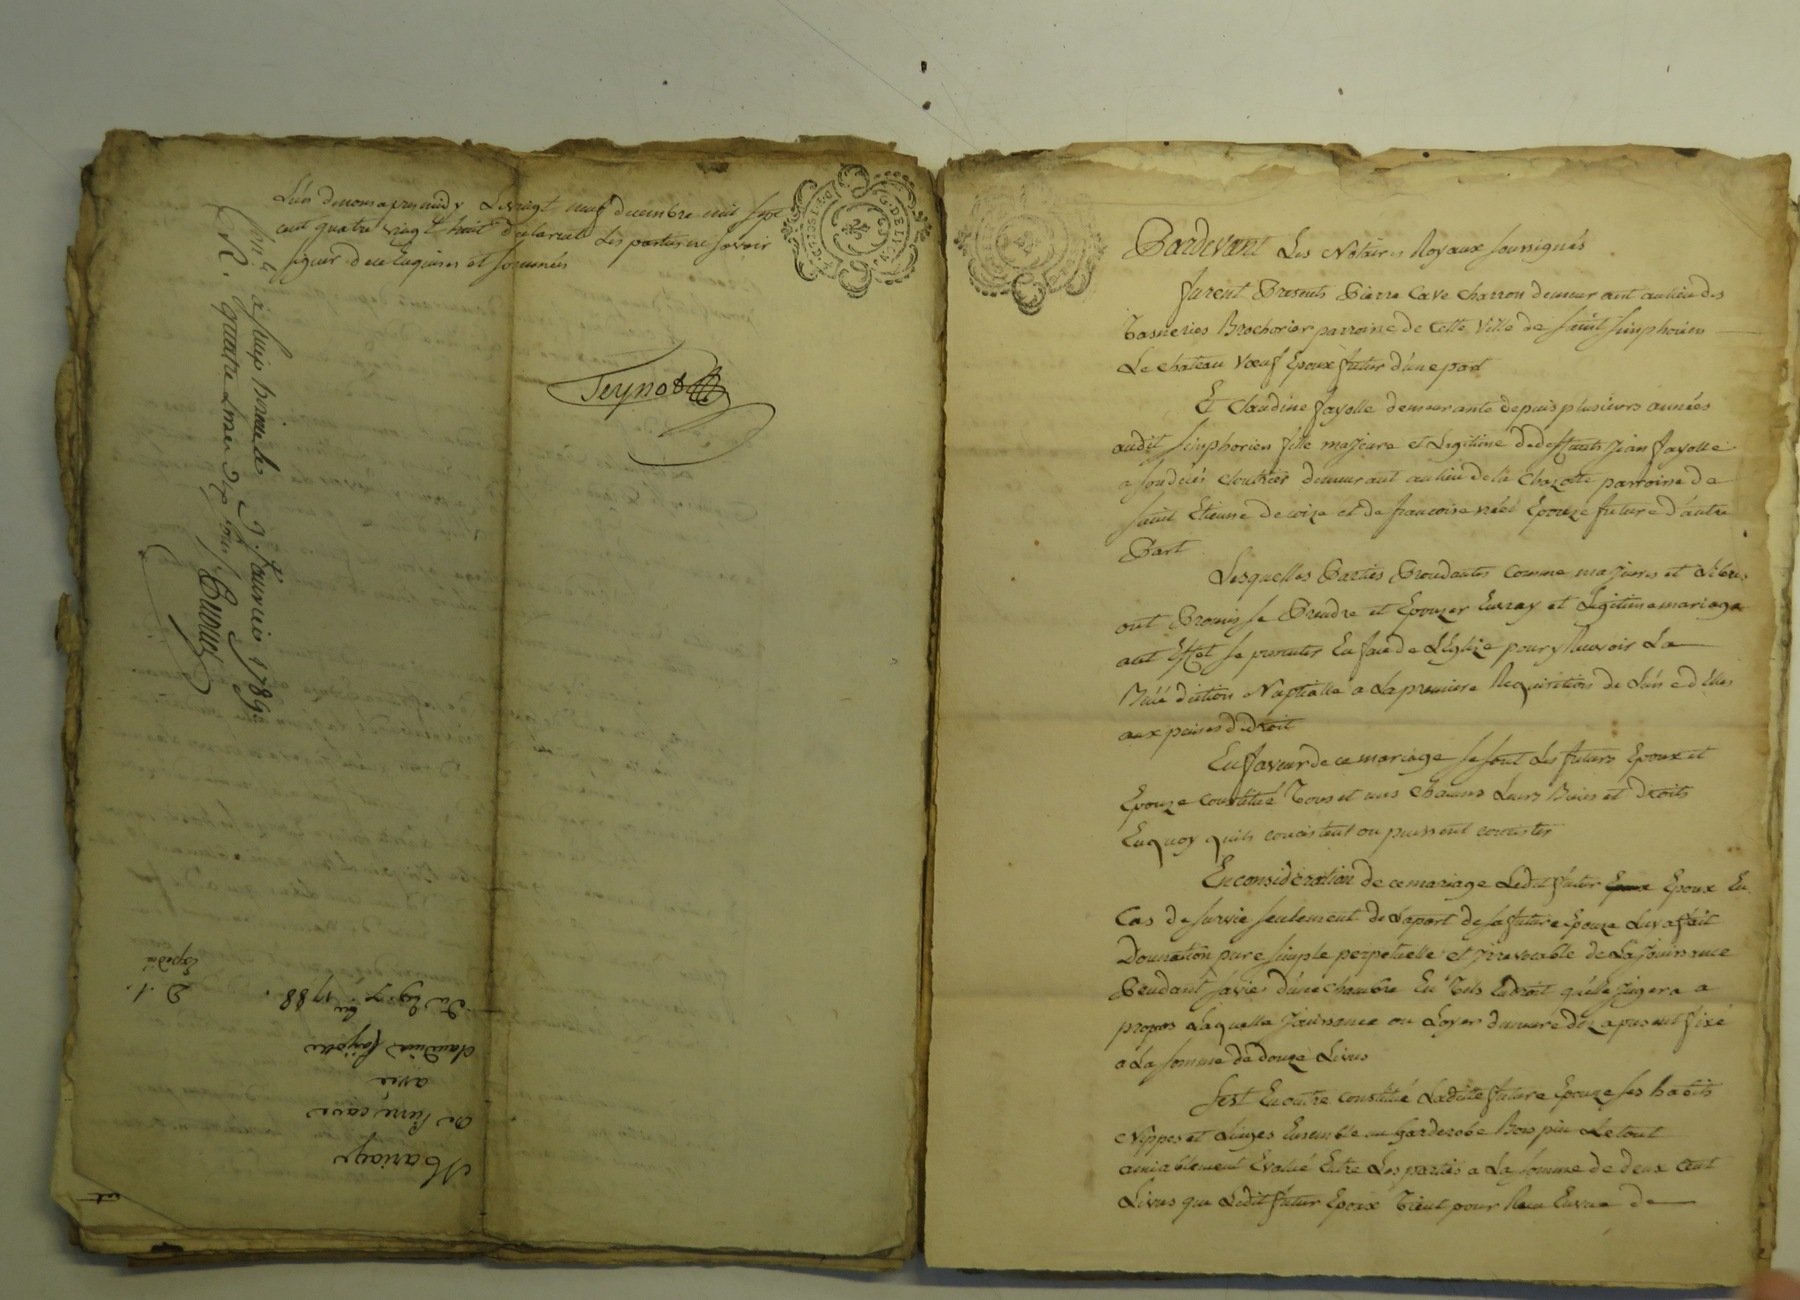 L'un d'en nous apres midy Le vingt neuf decembre mil sept
cent quatre vingt huit declarant Les parties ne savoir
signer de ce Enquises et sommées
Teynot
à St Simp. le 9. Janvier 1789.
R. quatre Livres dix sous
Mariage
De Pierre cave
avec
claudine fayolle
Du 29 Xbre 1788.
Expedié
Pardevant Les Notaires Royaux soussignés
furent Presents Pierre Cave charron demeurant au lieu des
Tasneries Brochorier parroisse de cette Ville de Saint Simphorien
Le chateau Vœuf Epoux futur d'une part
Et Claudine fayolle demeurante depuis plusieurs années
audit Simphorien fille majeure et Legitime de deffunts Jean fayolle
a son deces Clouttier demeurant au lieu de la Chazotte parroisse de
Saint Etienne de coize et de francoise néel Epouze future d'autre
Part
Lesquelles Parties Procedantes comme majeures et Libres
ont Promis se Prendre et Epouzer En vray et Legitime mariage
a cet Effet se presenter En face de L'Eglize pour y Recevoir La
Béné diction Nuptialle a La premiere Requisition de L'une d'Elles
aux peines de droit
En faveur de ce mariage se sont Les futurs Epoux et
Epouze Constitué Tous et uns chacuns Leurs Biens et droits
En quoy qu'ils concistent ou puissent concister
En considération de ce mariage Ledit futur Epoux Epoux En
Cas de survie seulement de La part de sa future Epouze Luy a fait
Donnation pure simple perpetuelle et Irrevocable de La Jouissance
Pendant sa vie d'une chambre En Tels Endroit qu'elle Jugera a
propos Laquelle Jouissance ou Loyer demeure dez a present fixé
a La somme de douze Livres
S'est En outre constitué Laditte future Epouze ses habits
Nippes et Linges Ensemble un Garderobe Bois pin Le tout
amiablement Evalué Entre Les parties a La somme de deux Cent
Livres que Ledit futur Epoux Tient pour Recu En vue de